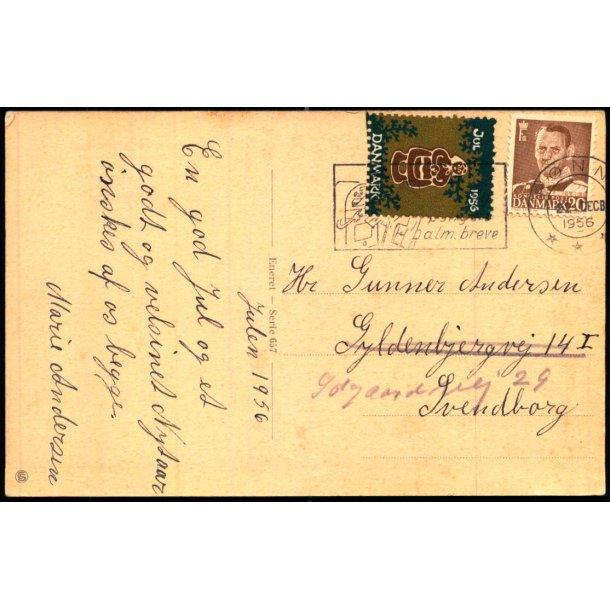 En god Jul og et
godt og velsinet Nytaar
önskes af os begge.
Marie Andersen
Julen 1956
Eneret — Serie 657
JUL 1956
DANMARK
DANMARK 20
DECB
1956
alm. breve
Hr Gunner Andersen
Gyldenbjergvej 14 I
29
Svendborg